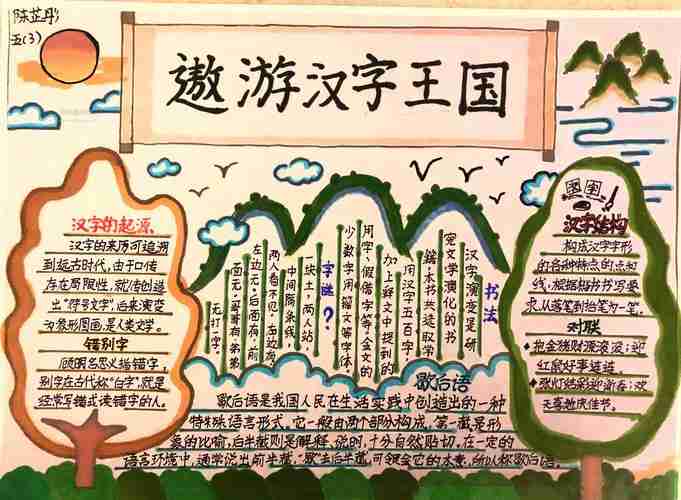 陈芷彤
五(3)
遨游汉字王国
汉字的起源
汉字的来历可追溯
到远古时代,由于口传
存在局限性,就传创造
出"符号文字",后来演变
为象形图画,是人类文学。
错别字
顾明名思义指错字,
别字在古代称"白字",就是
经常写错或读错字的人。
书法
汉字演变是研
究文学演化的书
籍,本书共选取常
用汉字五百字,
加上释文中提到的
用字、假借字等,金文的
少数字用籀文等字体,
字谜?
一块土,两人站
中间隔条线,
两人看不见,左边右
左边无,后面有,前
面无,哥哥有,弟弟
无打一字。
汉字结构
构成汉字字形
的各种特点的点和
线,根据楷书书写要
求,从落笔到抬笔为一笔。
对联
抱金猪财源滚滚;迎
红鼠好事连连。
张灯结彩迎新春;欢
天喜地庆佳节。
歇后语
歇后语是我国人民在生活实践中创造出的一种
特殊语言形式,它一般由两个部分构成,第一截是形
象的比喻,后半截则是解释、说明,十分自然贴切,在一定的
语言环境中,通常说出前半截,"歇"去后半截,可领会它的本意,所以称歇后语。